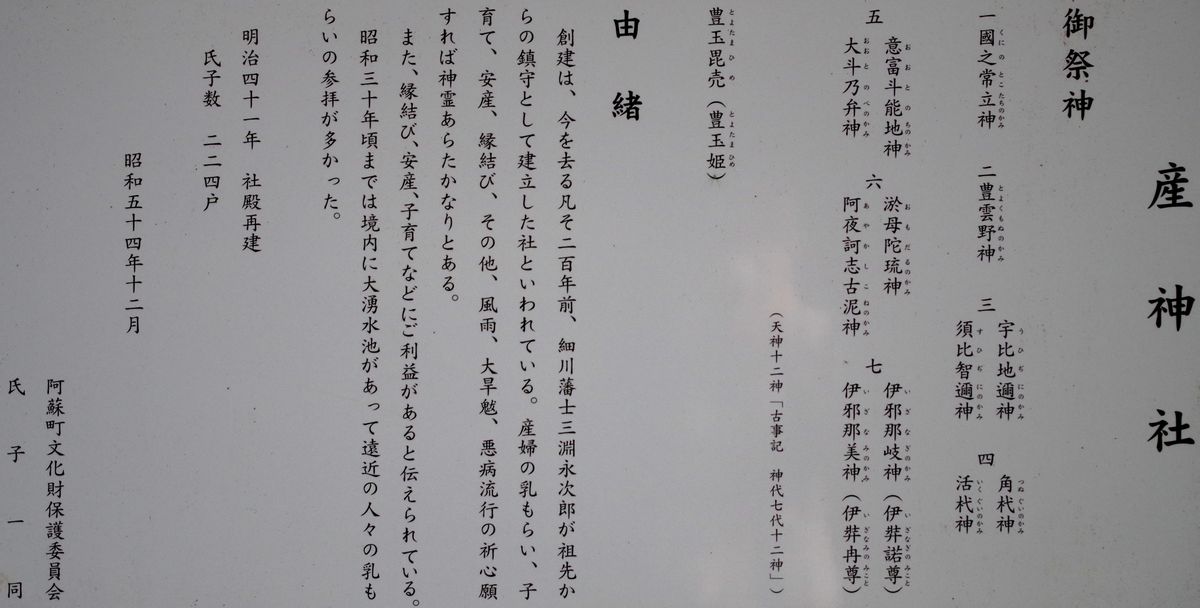 産神社
御祭神
一國之常立神　二豊雲野神　三　宇比地邇神　四　角杙神
須比智邇神　活杙神
五　意富斗能地神　六　淤母陀琉神　七　伊邪那岐神（伊弉諾尊）
大斗乃弁神　阿夜訶志古泥神　伊邪那美神（伊弉冉尊）
（天神十二神「古事記　神代七代十二神」）
豊玉毘売（豊玉姫）
由緒
創建は、今を去る凡そ二百年前、細川藩士三淵永次郎が祖先か
らの鎮守として建立した社といわれている。産婦の乳もらい、子
育て、安産、縁結び、その他、風雨、大旱魃、悪病流行の祈心願
すれば神霊あらたかなりとある。
また、縁結び、安産、子育てなどにご利益があると伝えられている。
昭和三十年頃までは境内に大湧水池があって遠近の人々の乳も
らいの参拝が多かった。
明治四十一年　社殿再建
氏子数　二二四戸
昭和五十四年十二月
阿蘇町文化財保護委員会
氏子一同